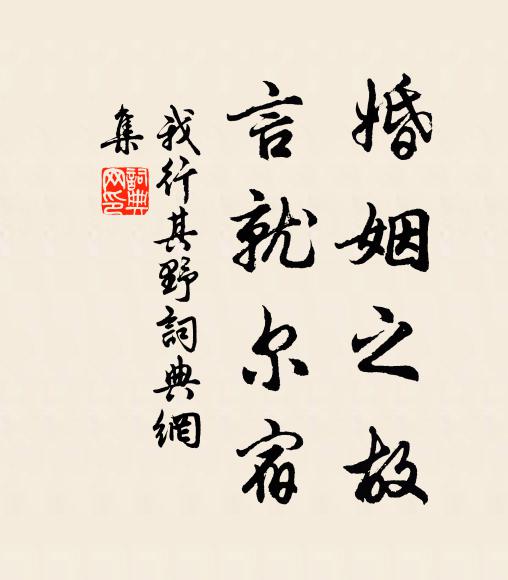 婚姻之故
言就尔宿
我行其野詞典網
集
詞典
网印